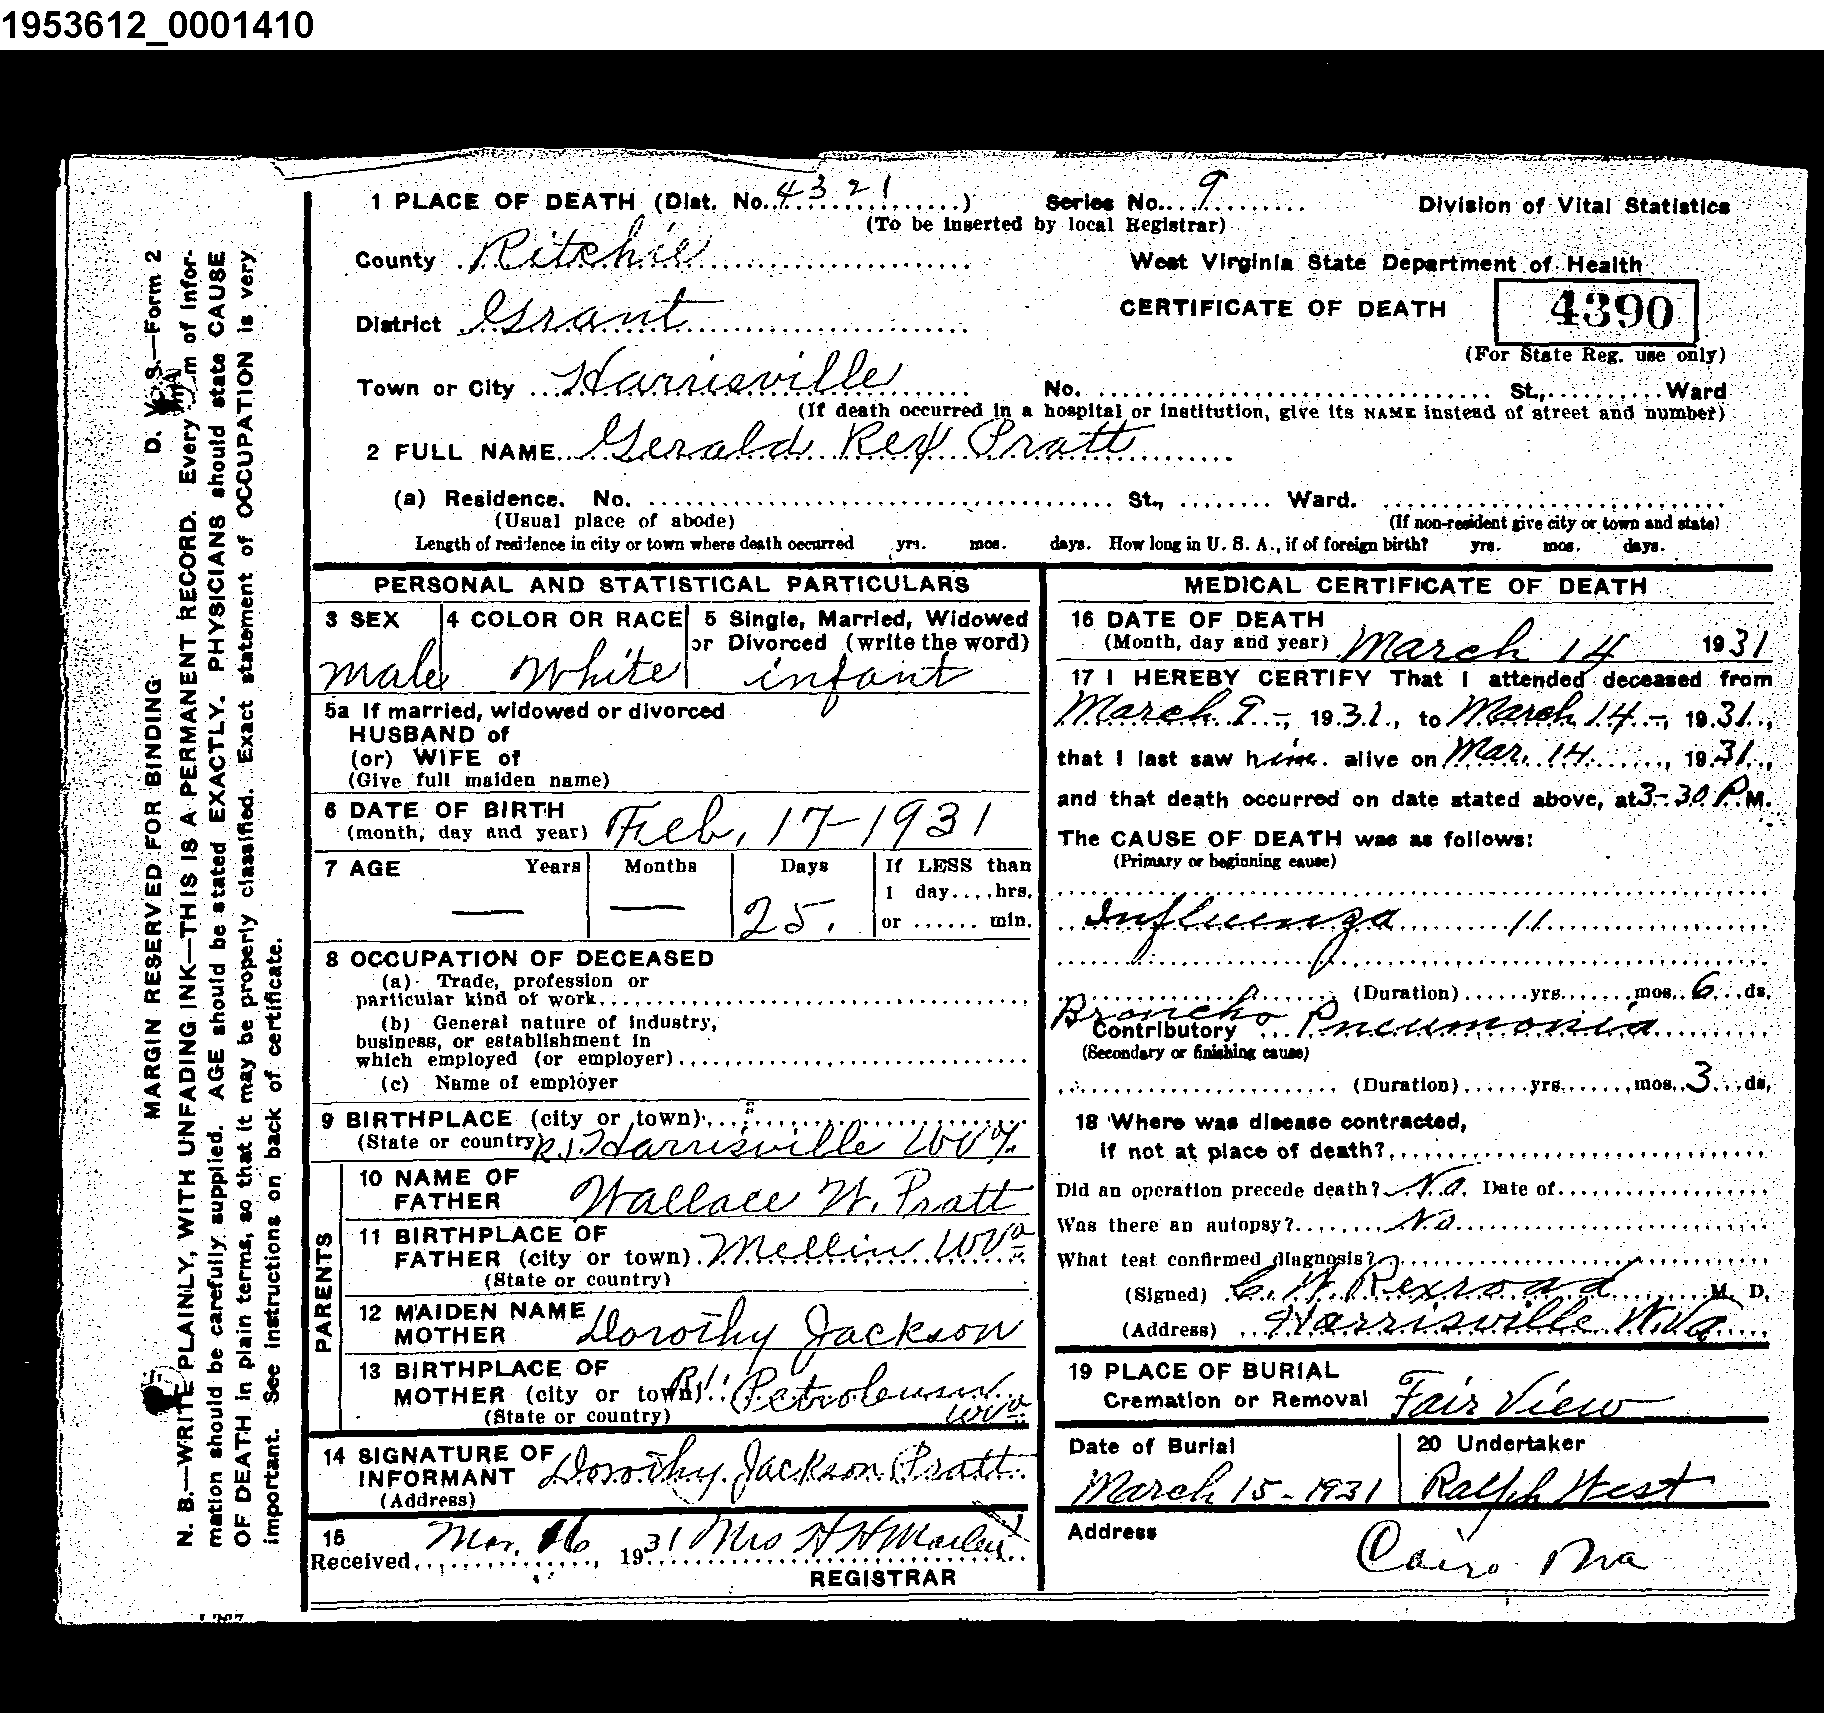 1953612_0001410
1 PLACE OF DEATH (Dist. No. 4321) Series No. 9 Division of Vital Statistics
(To be inserted by local Registrar)
County Ritchie West Virginia State Department of Health
District Grant CERTIFICATE OF DEATH 4390
(For State Reg. use only)
Town or City Harrisville No. St., Ward
(If death occurred in a hospital or institution, give its NAME instead of street and number)
2 FULL NAME Gerald Rex Pratt
(a) Residence. No. St., Ward.
(Usual place of abode) (If non-resident give city or town and state)
Length of residence in city or town where death occurred yrs. mos. days. How long in U. S. A., if of foreign birth? yrs. mos. days.
PERSONAL AND STATISTICAL PARTICULARS
3 SEX 4 COLOR OR RACE 5 Single, Married, Widowed
or Divorced (write the word)
male White infant
5a If married, widowed or divorced
HUSBAND of
(or) WIFE of
(Give full maiden name)
6 DATE OF BIRTH
(month, day and year) Feb. 17-1931
7 AGE Years Months Days If LESS than
1 day....hrs.
— — 25. or ...... min.
8 OCCUPATION OF DECEASED
(a) Trade, profession or
particular kind of work
(b) General nature of industry,
business, or establishment in
which employed (or employer)
(c) Name of employer
9 BIRTHPLACE (city or town)
(State or country) R.1. Harrisville WVa
PARENTS
10 NAME OF
FATHER Wallace W. Pratt
11 BIRTHPLACE OF
FATHER (city or town) Mellin WVa
(State or country)
12 MAIDEN NAME
MOTHER Dorothy Jackson
13 BIRTHPLACE OF
MOTHER (city or town) R1. Petroleum
(State or country) WVa
14 SIGNATURE OF
INFORMANT Dorothy Jackson Pratt
(Address)
15
Received Mar. 16 1931 Mrs H H
REGISTRAR
MEDICAL CERTIFICATE OF DEATH
16 DATE OF DEATH
(Month, day and year) March 14 1931
17 I HEREBY CERTIFY That I attended deceased from
March 9-, 1931, to March 14-, 1931,
that I last saw him alive on Mar. 14, 1931,
and that death occurred on date stated above, at 3-30 P.M.
The CAUSE OF DEATH was as follows:
(Primary or beginning cause)
Influenza 11
(Duration) yrs. mos. 6 ds.
Contributory Broncho Pneumonia
(Secondary or finishing cause)
(Duration) yrs. mos. 3 ds.
18 Where was disease contracted,
if not at place of death?
Did an operation precede death? No. Date of
Was there an autopsy? No
What test confirmed diagnosis?
(Signed) C. W. Rexroad M. D.
(Address) Harrisville W.Va
19 PLACE OF BURIAL
Cremation or Removal Fair View
Date of Burial 20 Undertaker
March 15-1931 Ralph West
Address
Cairo
D. V. S.—Form 2
MARGIN RESERVED FOR BINDING
N. B.—WRITE PLAINLY, WITH UNFADING INK—THIS IS A PERMANENT RECORD. Every item of infor-
mation should be carefully supplied. AGE should be stated EXACTLY. PHYSICIANS should state CAUSE
OF DEATH in plain terms, so that it may be properly classified. Exact statement of OCCUPATION is very
important. See instructions on back of certificate.